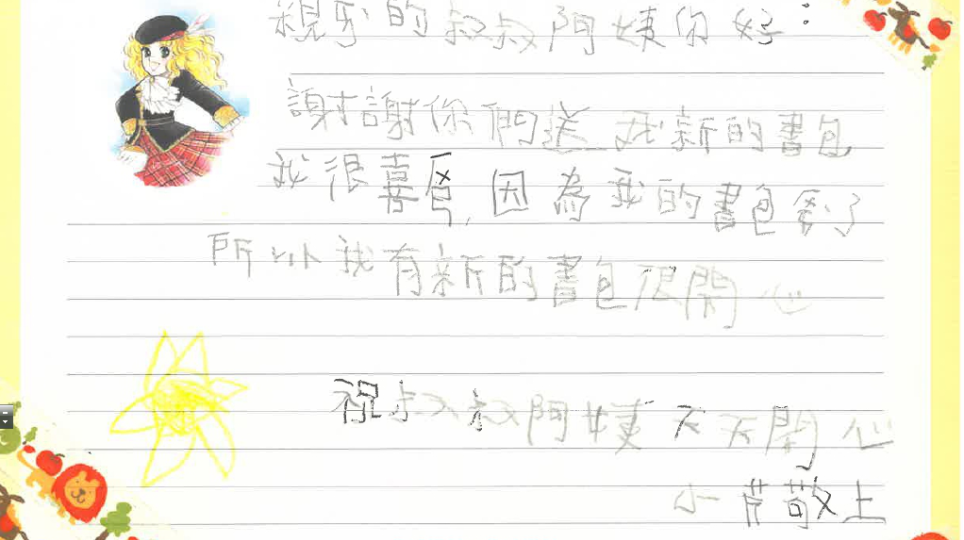 親愛的叔叔阿姨你好：
謝謝你們送我新的書包
我很喜 因為我的書包 了
所以我有新的書包很開心
祝叔叔阿姨天天開心
小芹敬上